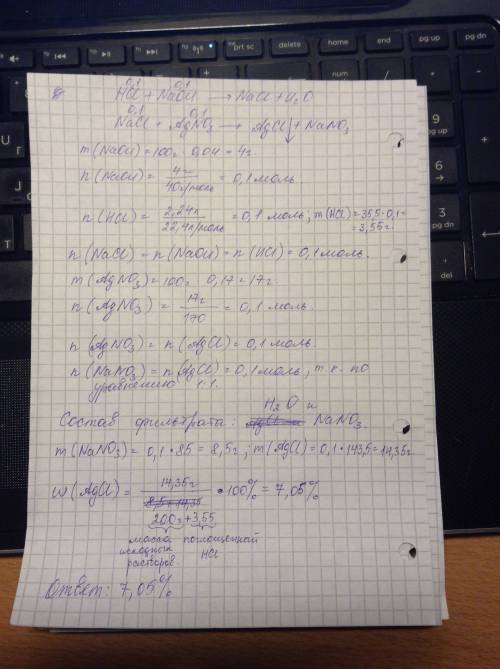 prt sc
delete
home
end
pg up
pg dn
0,1 0,1
HCl + NaOH → NaCl + H₂O
0,1 0,1
NaCl + AgNO₃ → AgCl↓ + NaNO₃
m(NaOH) = 100г · 0,04 = 4г.
n(NaOH) = 4г / 40г/моль = 0,1 моль.
n(HCl) = 2,24л / 22,4л/моль = 0,1 моль; m(HCl) = 35,5·0,1 =
= 3,55г.
n(NaCl) = n(NaOH) = n(HCl) = 0,1 моль.
m(AgNO₃) = 100г · 0,17 = 17г.
n(AgNO₃) = 17г / 170 = 0,1 моль.
n(AgNO₃) = n(AgCl) = 0,1 моль.
n(NaNO₃) = n(AgCl) = 0,1 моль, т.к. по
уравнению 1:1.
H₂O и
Состав фильтрата: NaNO₃.
m(NaNO₃) = 0,1 · 85 = 8,5г; m(AgCl) = 0,1 · 143,5 = 14,35г
w(AgCl) = 14,35г / 8,5 + 14,35 · 100% = 7,05%
200г + 3,55
масса поглощенный
исходных HCl
растворов
Ответ: 7,05%